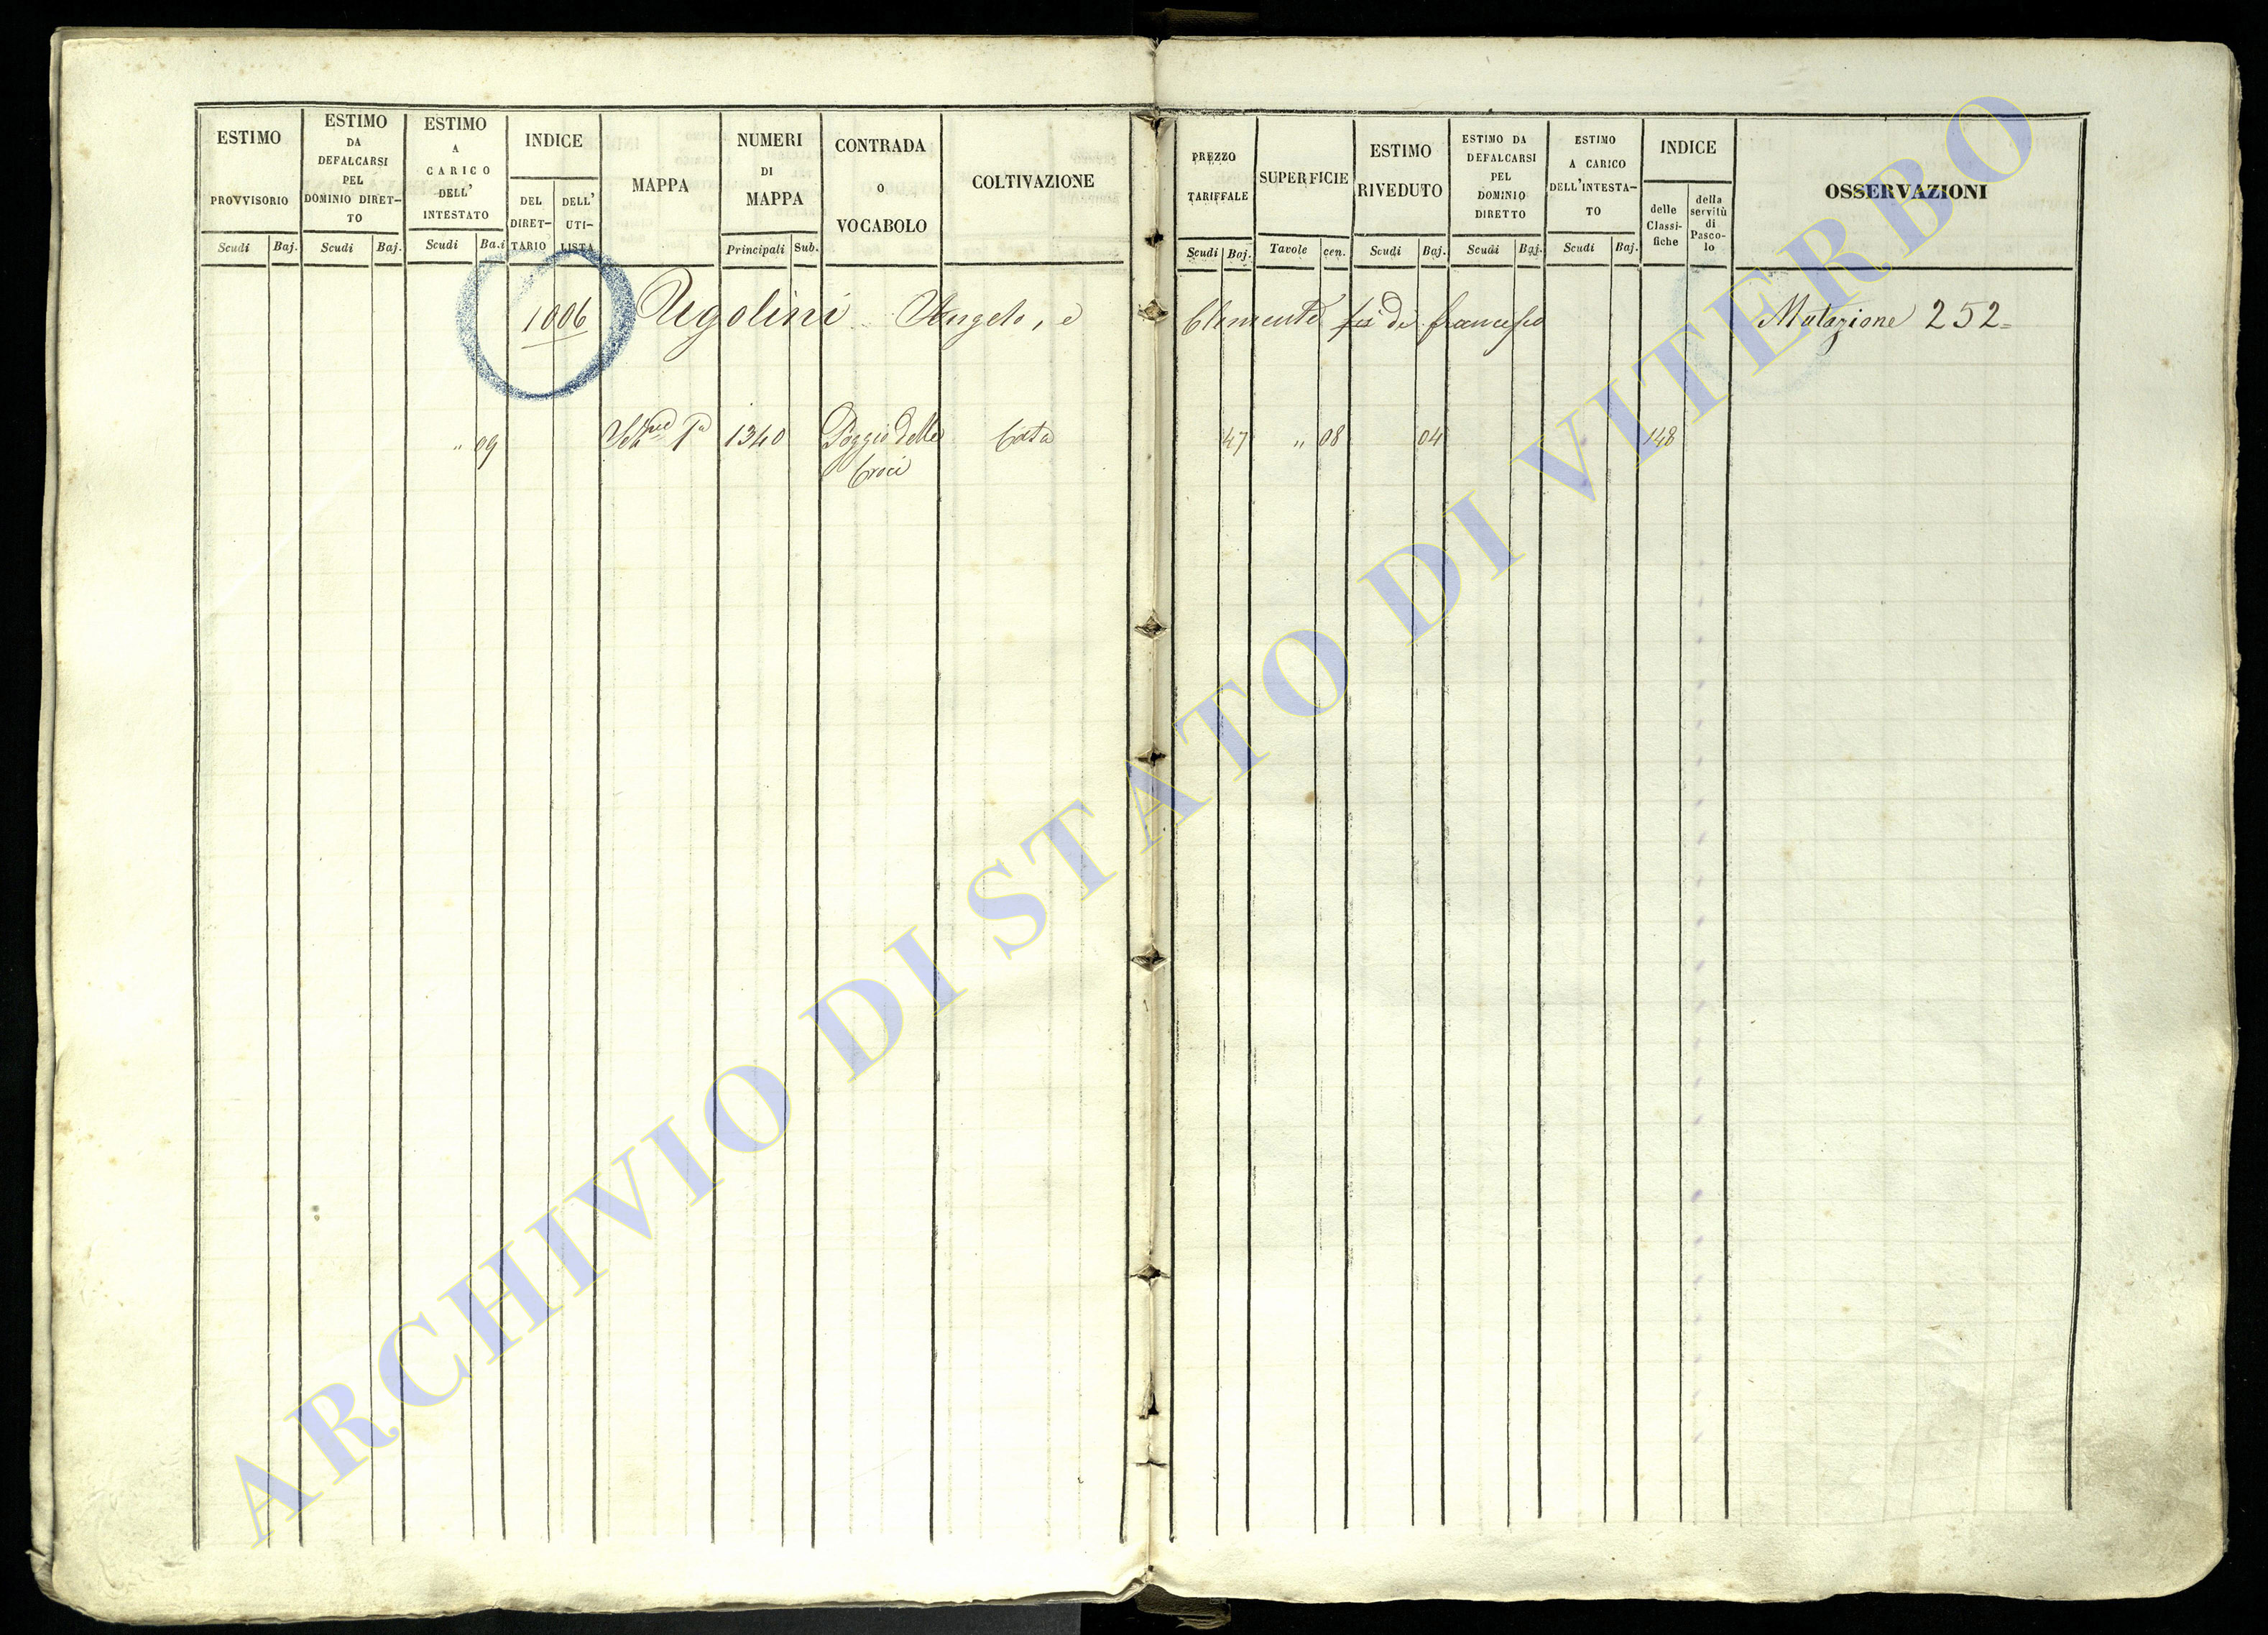 ESTIMO PROVVISORIO
Scudi Baj.
ESTIMO DA DEFALCARSI PEL DOMINIO DIRET-TO
Scudi Baj.
ESTIMO A CARICO DELL' INTESTATO
Scudi Ba.i
INDICE
DEL DIRET-TARIO
DELL' UTI-LISTA
MAPPA
NUMERI DI MAPPA
Principali Sub.
CONTRADA O VOCABOLO
COLTIVAZIONE
PREZZO TARIFFALE
Scudi Baj.
SUPERFICIE
Tavole cen.
ESTIMO RIVEDUTO
Scudi Baj.
ESTIMO DA DEFALCARSI PEL DOMINIO DIRETTO
Scudi Baj.
ESTIMO A CARICO DELL'INTESTA-TO
Scudi Baj.
INDICE
delle Classi-fiche
della servitù di Pasco-lo
OSSERVAZIONI
1006 Ugolini Angelo, e Clemente di Francesco Mutazione 252=
" 09 1340 Poggio delle 47 " 08 04 148
Croci
ARCHIVIO DI STATO DI VITERBO